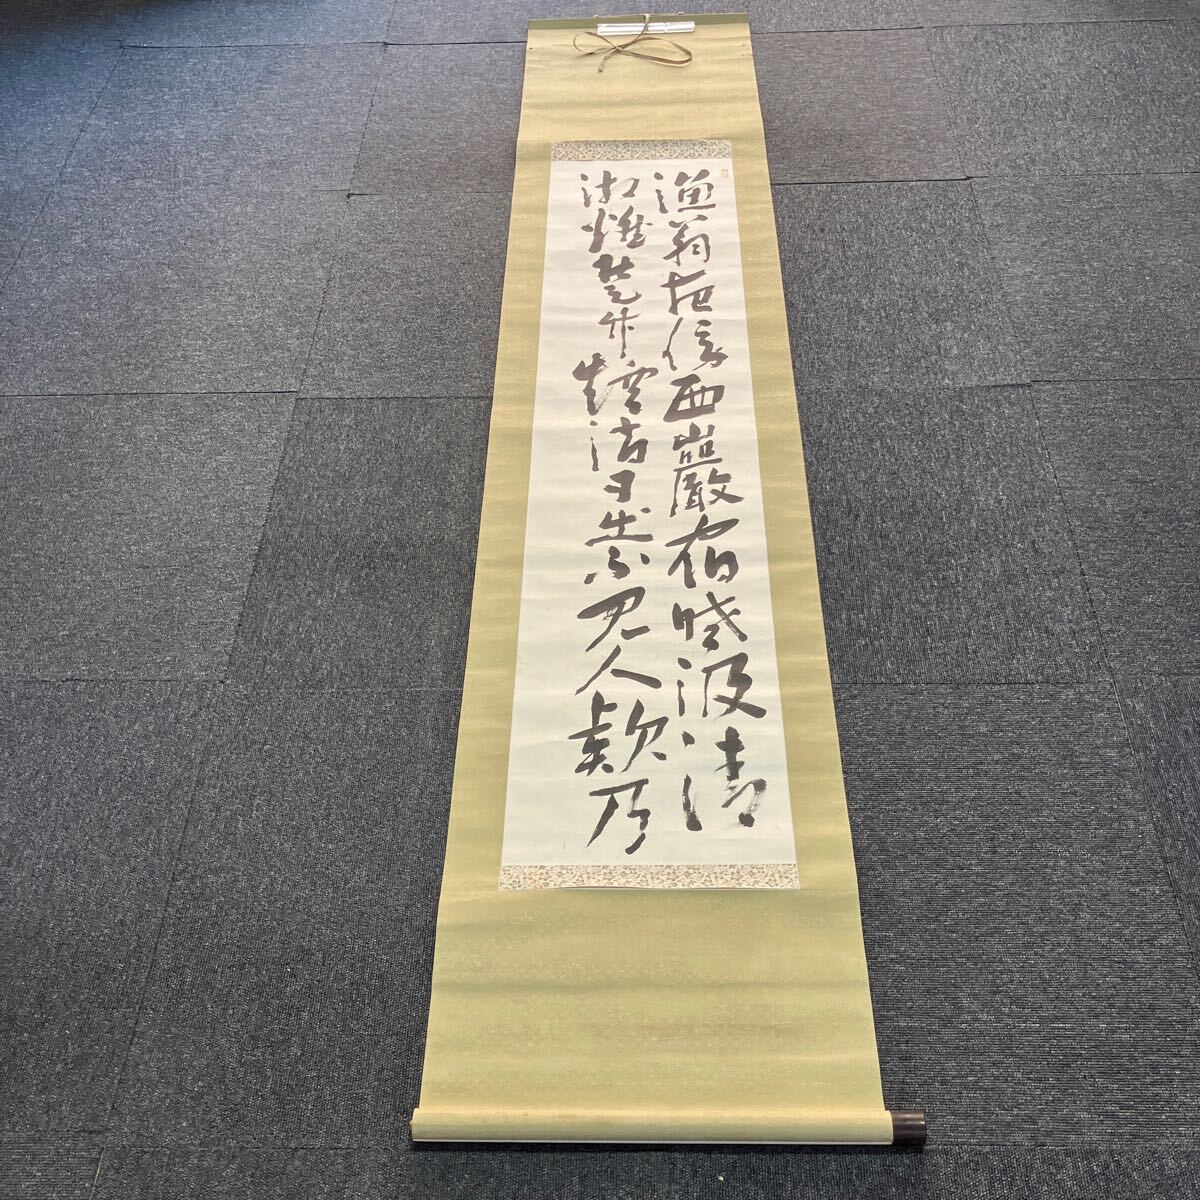 漁翁夜傍西巖宿曉汲清
湘燃楚竹煙消日出不見人欸乃